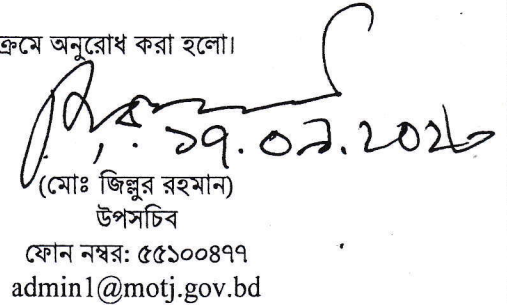 ক্রমে অনুরোধ করা হলো।
১৭.০৯.২০২৩
(মোঃ জিল্লুর রহমান)
উপসচিব
ফোন নম্বর: ৫৫১০০৪৭৭
admin1@motj.gov.bd